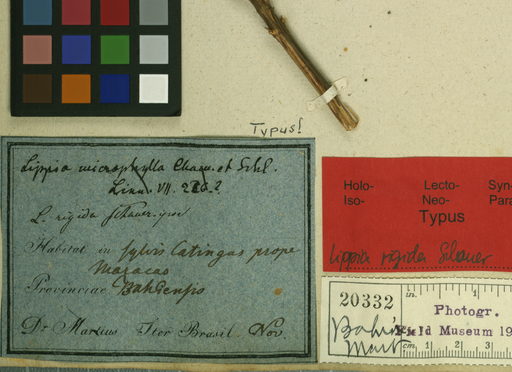 Typus!
Lippia microphylla Cham. et Schl.
Linn. VII. 226.?
L. rigida Schauer.
Habitat in sylvis Catingas prope
Maracas
Provinciae Bahiensis
Dr Martius Iter Brasil. Nov.
Holo- Lecto- Syn-
Iso- Neo- Para
Typus
Lippia rigida Schauer
20332
Bahia
Mart
in. 1
Photogr.
Field Museum 19
cm 1 2 3